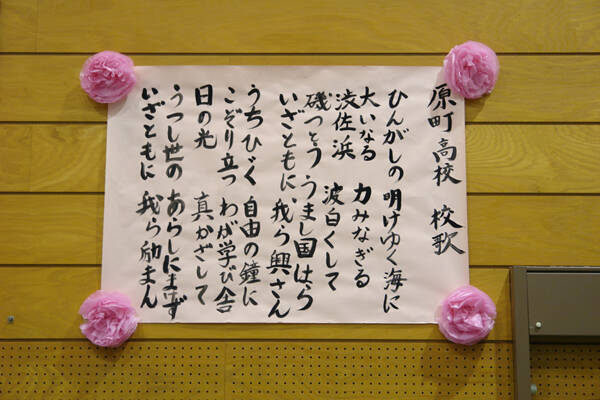 原町高校 校歌
ひんがしの 明けゆく海に
大いなる 力みなぎる
渋佐浜 波白くして
磯つとう うまし国はら
いざともに 我ら興さん
うちひゞく 自由の鐘に
こぞり立つ わが学び舎
日の光 真かざして
うつし世の あらしに
いざともに 我ら励まん